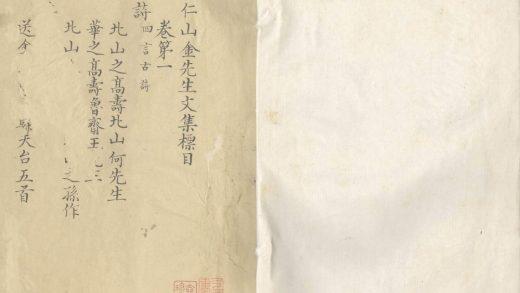 仁山金先生文集標目
卷第一
詩 四言古詩
北山之高壽北山何先生
華之高壽魯齋王
北山 之孫作
送 天台五首